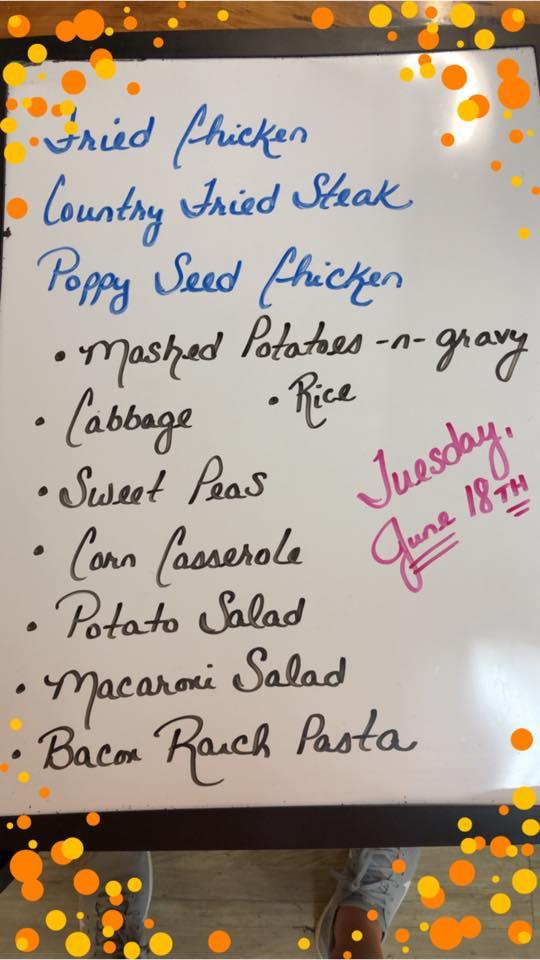 Fried Chicken
Country Fried Steak
Poppy Seed Chicken
• Mashed Potatoes -n- gravy
• Cabbage • Rice
• Sweet Peas
• Corn Casserole
• Potato Salad
• Macaroni Salad
• Bacon Ranch Pasta
Tuesday,
June 18TH